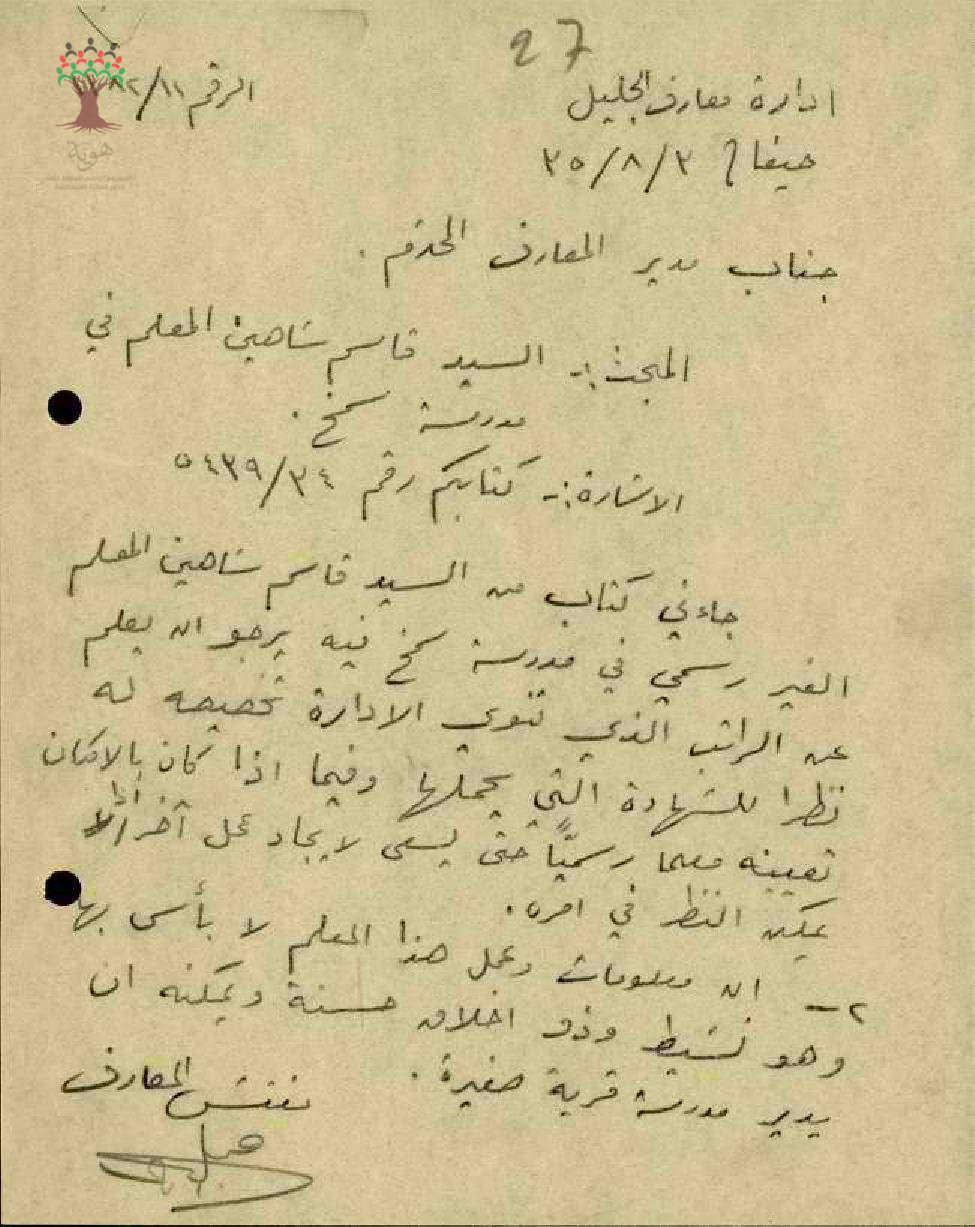 27
ادارة معارف الجليل
الرقم ٨٢/١١
حيفا في ٣٥/٨/٣
جناب مدير المعارف المحترم .
المبحث :- السيد قاسم شاهين المعلم في
مدرسة سمخ .
الاشارة :- كتابكم رقم ٥٤٣٩/٣٤
جاءني كتاب من السيد قاسم شاهين المعلم
الغير رسمي في مدرسة سمخ فيه يرجو ان يعلم
عن الراتب الذي تنوي الادارة تخصيصه له
نظرا للشهادة التي يحملها وفيما اذا كان بالامكان
تعيينه معلما رسميًا حتى يسعى لايجاد عمل آخر اذا لا
يمكن النظر في امره .
٢ - ان معلومات وعمل هذا المعلم لا بأس بها
وهو نشيط وذو اخلاق حسنة ويمكنه ان
يدير مدرسة قرية صغيرة .
مفتش المعارف
هوية